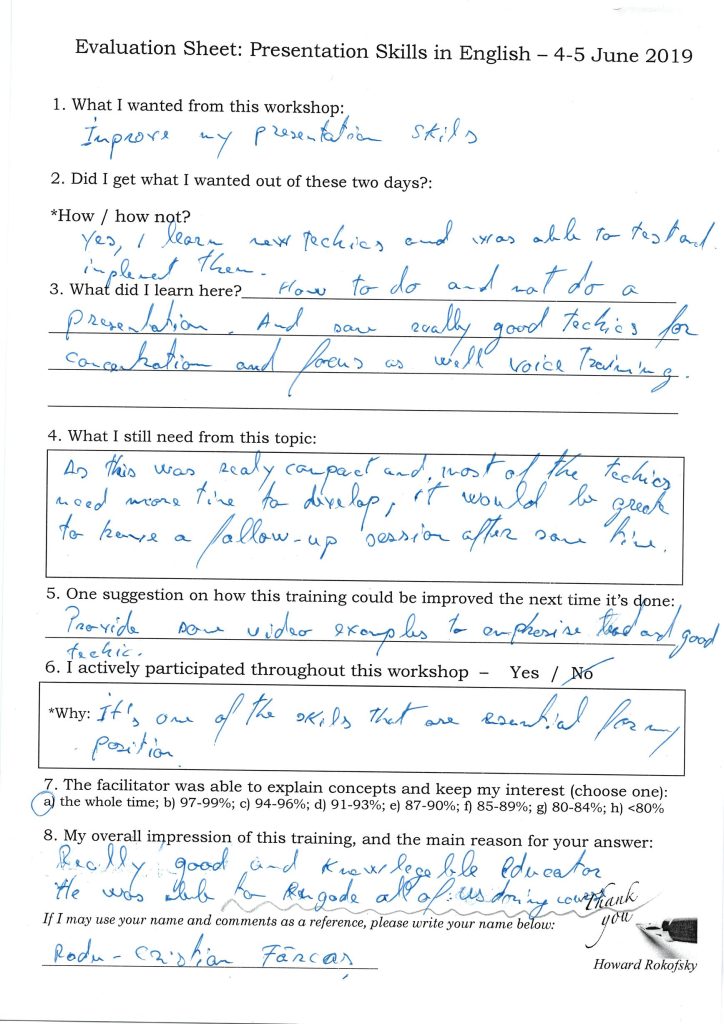 Evaluation Sheet: Presentation Skills in English – 4-5 June 2019
1. What I wanted from this workshop:
Improve my presentation skils
2. Did I get what I wanted out of these two days?:
*How / how not?
Yes, I learn new techics and was able to test and
inplement them.
3. What did I learn here? How to do and not do a
presentation. And som really good techics for
concentration and focus as well voice training.
4. What I still need from this topic:
As this was realy compact and, most of the techics
need more time to divelop, it would be great
to have a follow-up session after som time.
5. One suggestion on how this training could be improved the next time it's done:
Provide some video examples to emphesise bad and good
techic.
6. I actively participated throughout this workshop – Yes / No
*Why: It's one of the skils that are esential for my
position
7. The facilitator was able to explain concepts and keep my interest (choose one):
a) the whole time; b) 97-99%; c) 94-96%; d) 91-93%; e) 87-90%; f) 85-89%; g) 80-84%; h) <80%
8. My overall impression of this training, and the main reason for your answer:
Really good and knowlegeble educator
He was able to engade all of us during
Thank
you
If I may use your name and comments as a reference, please write your name below:
Radu-Cristian Fărcaș
Howard Rokofsky